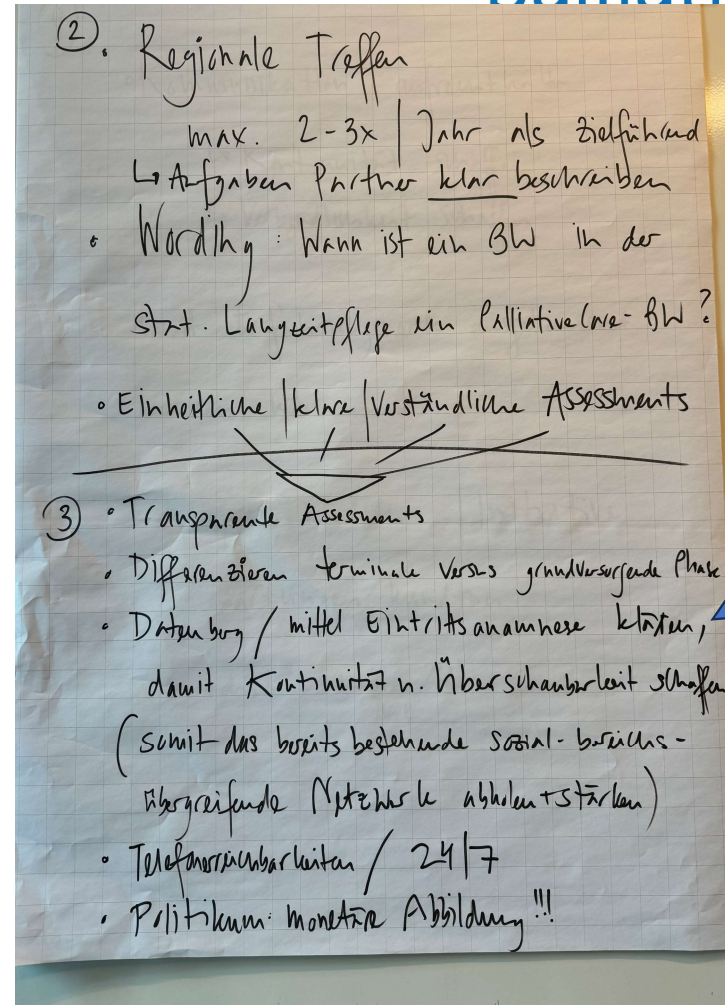 ② • Regionale Treffen
max. 2-3x | Jahr als zielführend
↳ Aufgaben Partner klar beschreiben
• Wording: Wann ist ein BW in der
stat. Langzeitpflege ein Palliative Care-BW?
• Einheitliche | klare | Verständliche Assessments
③ • Transparente Assessments
• Differenzieren terminale versus grundversorgende Phase
• Datenberg / mittel Eintrittsanamnese klären,
damit Kontinuität u. Überschaubarkeit schaffen
(somit das bereits bestehende sozial-bereichs-
übergreifende Netzwerk abholen + stärken)
• Telefonerreichbarkeiten / 24|7
• Politikum: monetäre Abbildung!!!